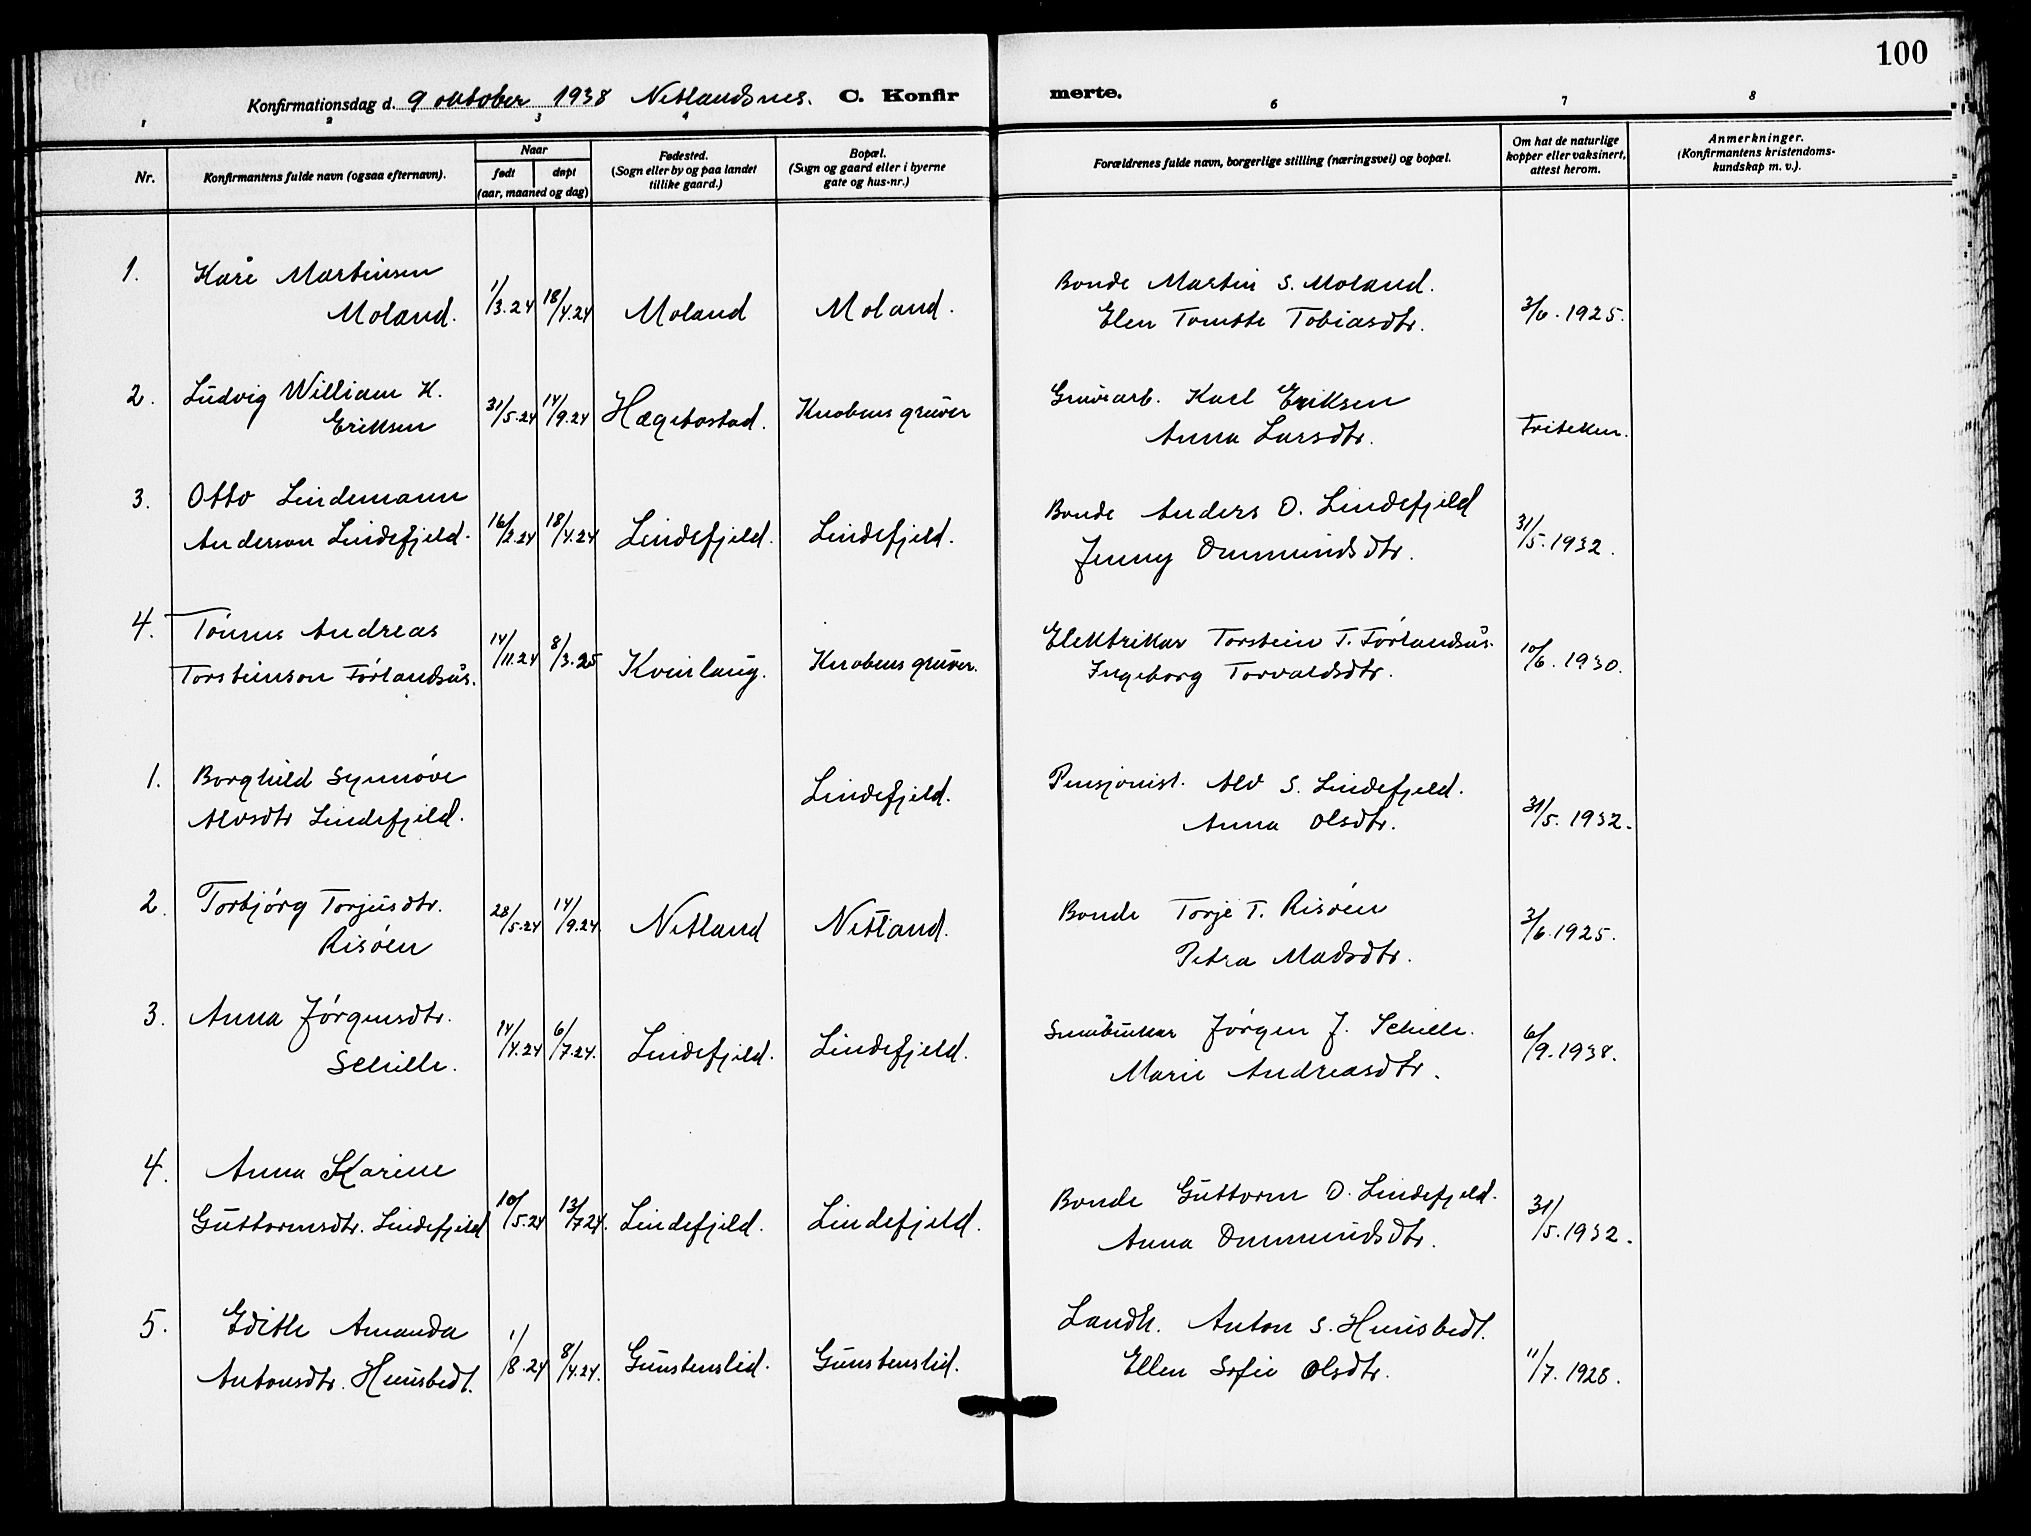 100
Konfirmationsdag d. 9 oktober 1938 Netlandsnes. C. Konfirmerte.
1 2 3 4 6 7 8
Nr.
Konfirmantens fulde navn (ogsaa efternavn).
Naar
født døpt
(aar, maaned og dag)
Fødested.
(Sogn eller by og paa landet
tillike gaard.)
Bopæl.
(Sogn og gaard eller i byerne
gate og hus-nr.)
Forældrenes fulde navn, borgerlige stilling (næringsvei) og bopæl.
Om hat de naturlige
kopper eller vaksinert,
attest herom.
Anmerkninger.
(Konfirmantens kristendoms-
kundskap m. v.).
1. Kåre Martinsen Bonde Martin S. Moland.
Moland. 1/3.24 18/4.24 Moland Moland. Elen Tomtte Tobiasdtr. 3/6. 1925.
2. Ludvig William K. Gruvearb. Karl Eriksen
Eriksen 31/5.24 14/9.24 Hægebostad. Knabens gruver Anna Larsdtr. Friteken.
3. Otto Lindemann Bonde Anders O. Lindefjeld
Anderson Lindefjeld. 16/2.24 18/4.24 Lindefjeld. Lindefjeld. Jenny Ommundsdtr. 31/5. 1932.
4. Tønnes Andreas Elektriker Torstein T. Førlandsås.
Torsteinson Førlandsås. 14/11.24 8/3.25 Kvinlaug. Knabens gruver. Ingeborg Torvaldsdtr. 10/6. 1930.
1. Borghild Synnøve Pensjonist. Alv S. Lindefjeld.
Alvsdtr Lindefjeld. Lindefjeld. Anna Olsdtr. 31/5. 1932.
2. Torbjørg Torjusdtr. Bonde Torje T. Risøen
Risøen 28/5.24 14/9.24. Netland Netland. Petra Madsdtr. 3/6.1925.
3. Anna Jørgensdtr. Småbruker Jørgen J. Schille.
Schille. 14/4.24 6/7.24. Lindefjeld. Lindefjeld. Marie Andreasdtr. 6/9.1938.
4. Anna Karine Bonde Guttorm O. Lindefjeld.
Guttormsdtr. Lindefjeld 10/5.24 13/7.24. Lindefjeld. Lindefjeld. Anna Ommundsdtr. 31/5.1932.
5. Edith Amanda Landh. Anton S. Hunsbedt.
Antonsdtr. Hunsbedt. 1/8.24 8/4.24. Gunstenslid. Gunstenslid. Ellen Sofie Olsdtr. 11/7. 1928.